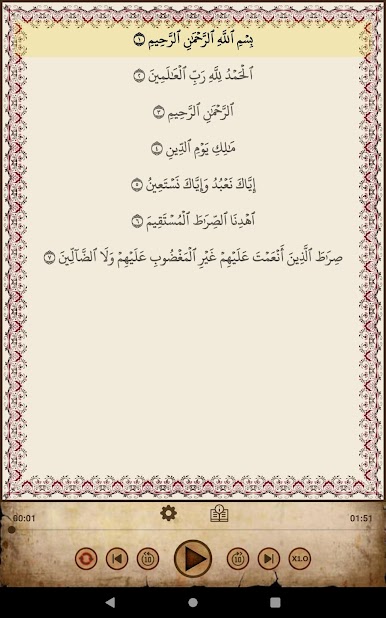 بِسْمِ ٱللَّهِ ٱلرَّحْمَٰنِ ٱلرَّحِيمِ ۝١
ٱلْحَمْدُ لِلَّهِ رَبِّ ٱلْعَٰلَمِينَ ۝٢
ٱلرَّحْمَٰنِ ٱلرَّحِيمِ ۝٣
مَٰلِكِ يَوْمِ ٱلدِّينِ ۝٤
إِيَّاكَ نَعْبُدُ وَإِيَّاكَ نَسْتَعِينُ ۝٥
ٱهْدِنَا ٱلصِّرَٰطَ ٱلْمُسْتَقِيمَ ۝٦
صِرَٰطَ ٱلَّذِينَ أَنْعَمْتَ عَلَيْهِمْ غَيْرِ ٱلْمَغْضُوبِ عَلَيْهِمْ وَلَا ٱلضَّآلِّينَ ۝٧
00:01 01:51
10 10 X1.0